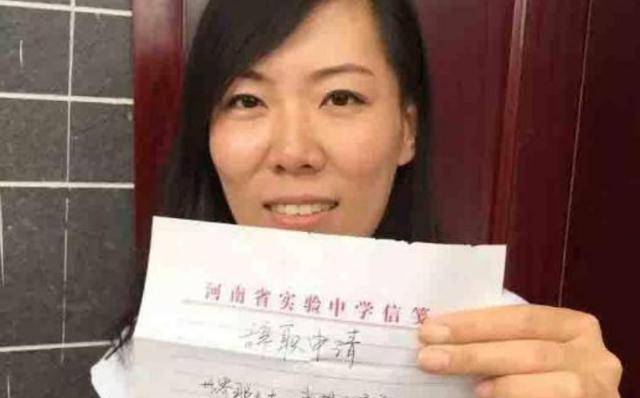 河南省实验中学信笺
辞职申请
世界那么大